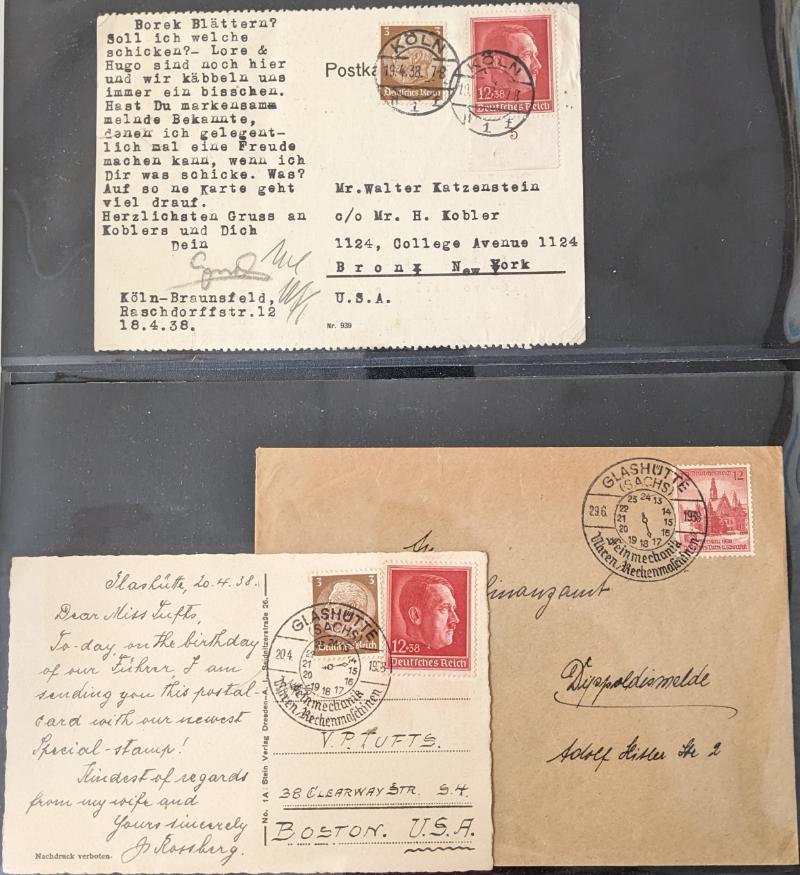 Borek Blättern?
Soll ich welche
schicken?- Lore &
Hugo sind noch hier
und wir käbbeln uns
immer ein bisschen.
Hast Du markensamm
melnde Bekannte,
denen ich gelegent-
lich mal eine Freude
machen kann, wenn ich
Dir was schicke. Was?
Auf so ne Karte geht
viel drauf.
Herzlichsten Gruss an
Koblers und Dich
Dein
Köln-Braunsfeld,
Raschdorffstr.12
18.4.38.
Postka
3 3
Deutsches Reich
KÖLN
19.4.38 7-8
1
12+38
Deutsches Reich
KÖLN
19 7-8
1
5
Mr.Walter Katzenstein
c/o Mr. H. Kobler
1124, College Avenue 1124
Bronx New York
U.S.A.
Nr. 939
GLASHÜTTE
(SACHS)
29.6. 1938
23 24 13
22 14
21 15
20 16
19 18 17
Feinmechanik
Uhren/Rechenmaschinen
12
inanzamt
Dippoldismelde
Adolf Hitler Str 2
Glashütte, 20.4.38.
Dear Miss Tufts,
To-day, on the birthday
of our Führer I am
sending you this postal-
card with our newest
Special-stamp!
Kindest of regards
from my wife and
Yours sincerely
Rossberg.
Nachdruck verboten.
No. 1A: Stein Verlag Dresden-A.
3 3
Deutsches Reich
12+38
Deutsches Reich
GLASHÜTTE
(SACHS)
20.4. 1938
21 15
20 16
19 18 17
Feinmechanik
Uhren/Rechenmaschinen
V.P. TUFTS.
38 CLEARWAY STR. S.4.
BOSTON. U.S.A.